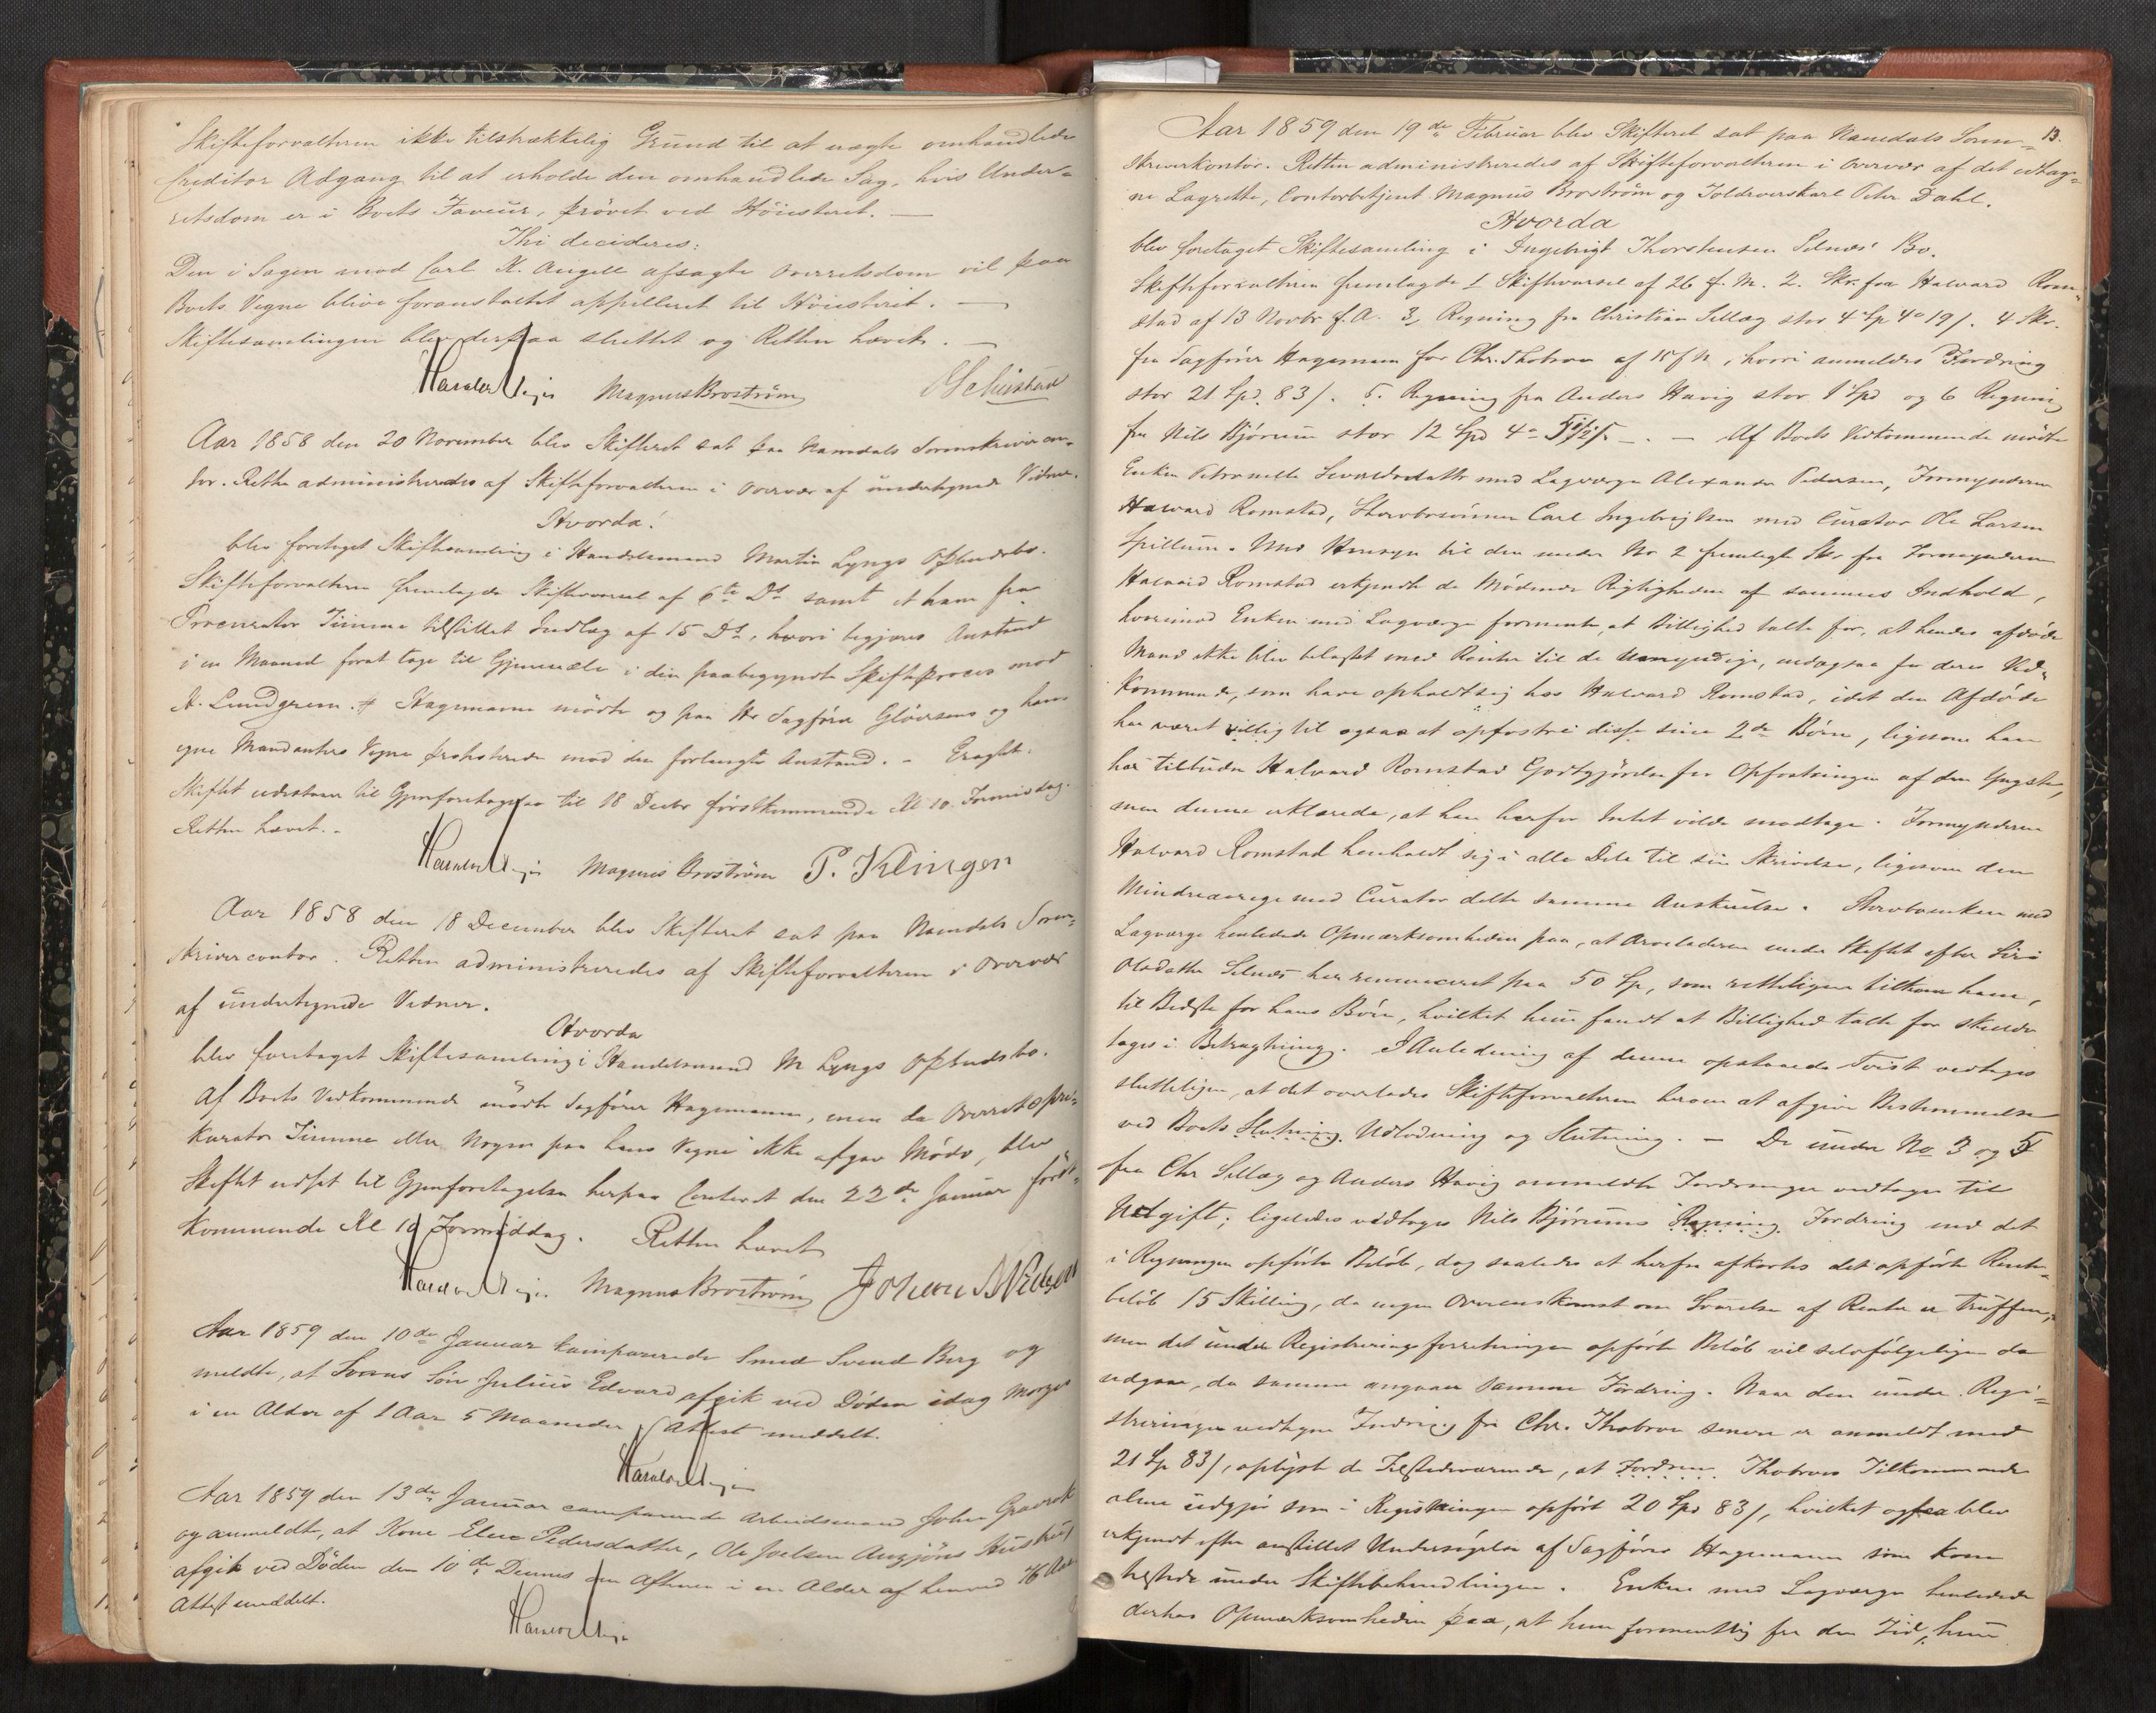 Skifteforvalteren ikke tilstrækkelig Grund til at nægte omhandlede
Creditor Adgang til at erholde den omhandlede Sag, hvis Under-
retsdom er i Boets Faveur, prøvet ved Höiesteret. —
Thi decideres:
Den i Sagen mod Carl K. Angell afsagte Overretsdom vil paa
Boets Vegne blive foranstaltet appelleret til Höiesteret. —
Skiftesamlingen blev derpaa sluttet og Retten hævet. —
Magnus Broström
Aar 1858 den 20 November blev Skifteret sat paa Namdals Sorenskrivercon-
tor. Retten administreredes af Skifteforvalteren i Overvær af undertegnede Vidner.
Hvorda!
blev foretaget Skiftesamling i Handelsmand Martin Lyngs Opbudsbo.
Skifteforvalteren fremlagde Skiftevarsel af 6te Ds samt et ham fra
Procurator Timme tilstillet Indlæg af 15 Ds, hvori begjæres Anstand
i en Maaned forat tage til Gjenmæle i den paabegyndte Skifteproces mod
A. Lundgreen. Hagemann mödte og paa Hr Sagförer Glöersens og hans
egne Mandanters Vegne protesterede mod den forlangte Anstand. - Eragtet:
Skiftet udstaaer til Gjenforetagelse til 18 Decbr förstkommende Kl 10 Formiddag.
Retten hævet. -
Magnus Broström P. Klingen
Aar 1858 den 18 December blev Skifteret sat paa Namdals Soren-
skrivercontor. Retten administreredes af Skifteforvalteren i Overvær
af undertegnede Vidner.
Hvorda
blev foretaget Skiftesamling i Handelsmand M Lyngs Opbudsbo.
Af Boets Vedkommende mödte Sagförer Hagemann, men da Overretspro-
kurator Timme eller Nogen paa hans Vegne ikke afgav Möde, blev
Skiftet udsat til Gjenforetagelse herpaa Contoret den 22de Januar först-
kommende Kl 10 Formiddag. Retten hævet
Magnus Broström Johan
Aar 1859 den 10de Januar kompareerede Smed Svend Berg og
meldte, at Svans Sön Julius Edvard afgik ved Döden idag Morges
i en Alder af 1 Aar 5 Maaneder. Attest meddelt.
Aar 1859 den 13de Januar comparerede Arbeidsmand John
og anmeldte, at Kone Elen Pedersdatter, Ole Joelsen
afgik ved Döden den 10de Dennes om Aftenen i en Alder af henved 76 Aar
Attest meddelt.
13.
Aar 1859 den 19de Februar blev Skifteret sat paa Namdals Soren-
skriverkontor. Retten administreredes af Skifteforvalteren i Overvær af det edtag-
ne Lagrette, Contorbetjent Magnus Broström og Toldroerskarl Peter Dahl.
Hvorda
blev foretaget Skiftesamling i Ingebrigt Thorstensen Selnæs' Bo.
Skifteforvalteren fremlagde 1 Skiftevarsel af 26 f. M. 2. Skr. fra Halvard Rom-
stad af 13 Novbr f. A. 3, Regning fra Christian Sellæg stor 4 Sp 4 19/. 4 Skr.
fra Sagförer Hagemann for Chr. Thobroe af 15 f M, hvori anmeldes Fordring
stor 21 Spd. 83/. 5. Regning fra Anders Havig stor 1 Spd og 6 Regning
fra Nils Björum stor 12 Spd 4 — . — Af Boets Vedkommende mödte
Enken Petronelle Sevaldsdatter med Lagværge Alexander Pedersen, Formynderen
Halvard Romstad, Stervbosönnen Carl Ingebrigtsen med Curator Ole Larsen
Spillum. Med Hensyn til den under No 2 fremlagte Skr. fra Formynderen
Halvard Romstad erkjendte de Mödende Rigtigheden af sammes Indhold,
hvorimod Enken med Lagværge formente, at Billighed talte for, at hendes afdöde
Mand ikke blev belastet med Renter til de Umyndige, endogsaa for deres Ved-
kommende, som have opholdt sig hos Halvard Romstad, idet den Afdöde
har været villig til ogsaa at opfostre disse sine 2de Börn, ligesom han
har tilbuden Halvard Romstad Godtgjörelse for Opfostringen af den Yngste,
men denne erklærede, at han herfor Intet vilde modtage. Formynderen
Halvard Romstad henholdt sig i alle Dele til sin Skrivelse, ligesom den
Mindreaarige med Curator delte samme Anskuelse. Stervboenken med
Lagværge henledede Opmærksomheden paa, at Arveladeren under Skiftet efter Siri
Olsdatter Selnæs har renunceret paa 50 Sp, som rettelig tilkom ham,
til Bedste for hans Börn, hvilket hun fandt at Billighed talte for skulde
tages i Betragtning. I Anledning af denne opstaaede Tvist vedtoges
sluttelig, at det overlodes Skifteforvalteren herom at afgive Bestemmelse
ved Boets Slutning Udlodning og Slutning. — De under No 3 og 5
fra Chr Sellæg og Anders Havig anmeldte Fordringer vedtoges til
Udgift; ligeledes vedtoges Nils Björums Regning Fordring med det
i Regningen opförte Belöb, dog saaledes at herfra afkortes det opförte Rente-
belöb 15 Skilling, da ingen Overenskomst om Svarelse af Renter er truffen,
men det under Registreringsforretningen opförte Belöb vil selvfölgelig da
udgaae, da samme angaaer samme Fordring. Naar den under Regi-
streringen vedtagne Fordring fra Chr. Thobroe senere er anmeldt med
21 Sp 83/, oplyste de Tilstedeværende, at Fordrin Thobroes Tilkommende
alene udgjör som i Registreringen opfört 20 Spd 83/, hvilket ogsaa blev
erkjendt efter anstillet Undersögelse af Sagförer Hagemann som kom
tilstede under Skiftebehandlingen. Enken med Lagværge henledede
derhos Opmærksomheden paa, at hun formentlig fra den Tid, hun